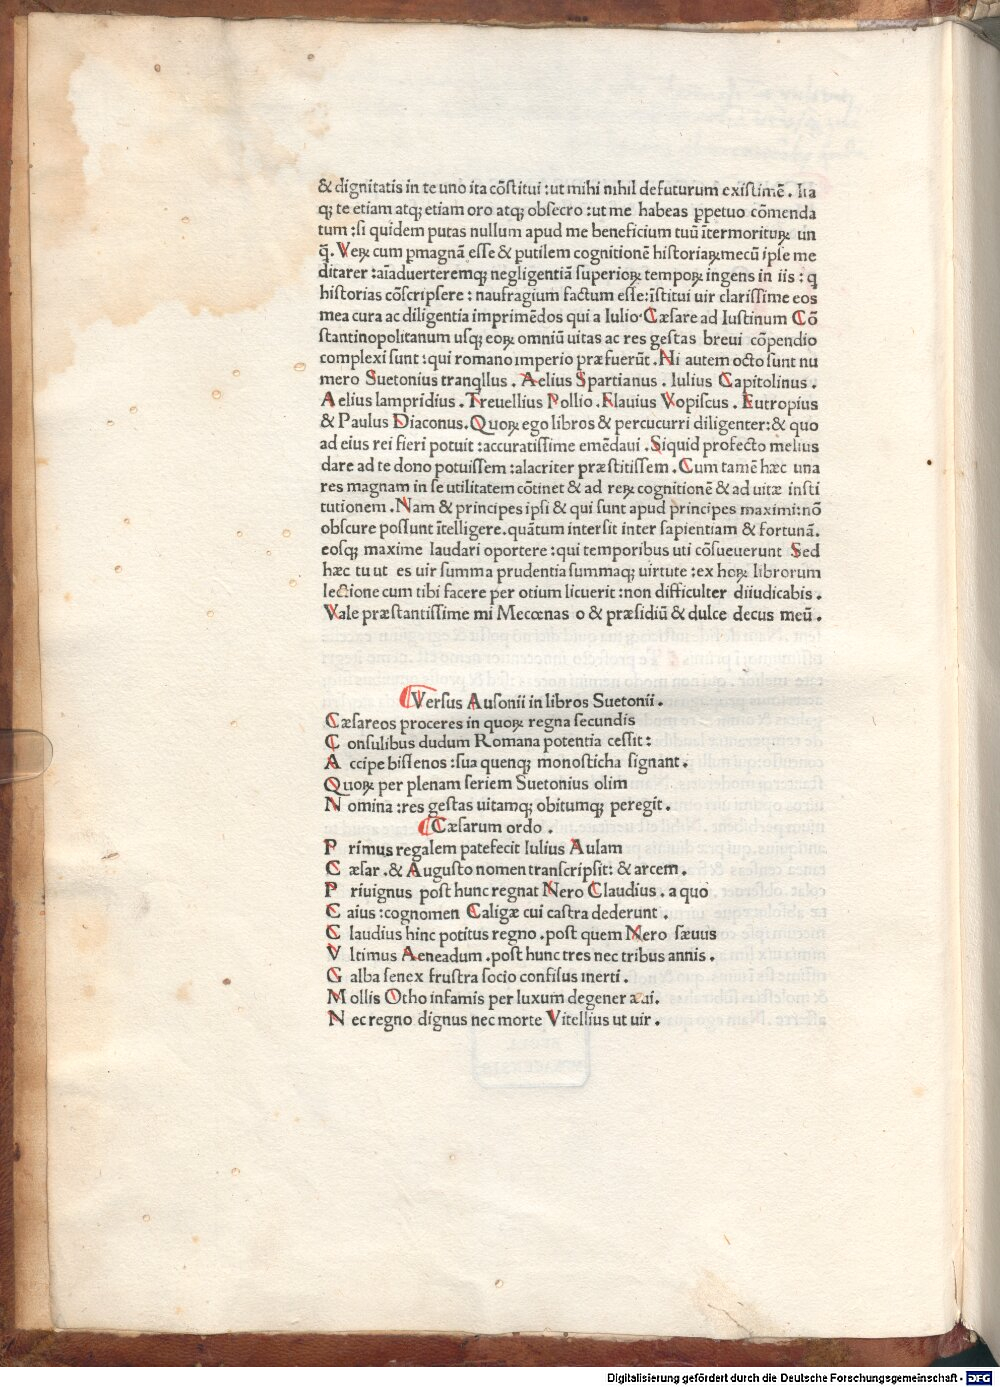 & dignitatis in te uno ita cõſtitui : ut mihi nihil defuturum exiſtimẽ . Ita
qꝫ te etiam atqꝫ etiam oro atqꝫ obſecro : ut me habeas ꝑpetuo cõmenda
tum : ſi quidem putas nullum apud me beneficium tuũ ĩtermorituꝝ un
q̃ . Veꝝ cum ꝑmagnã eſſe & putilem cognitionẽ hiſtoriaꝝ mecũ ipſe me
ditarer : aĩaduerteremqꝫ negligentiã ſuperioꝝ tempoꝝ ingens in iis : q
hiſtorias cõſcripſere : naufragium factum eſſe : ĩſtitui uir clariſſime eos
mea cura ac diligentia imprimẽdos qui a Iulio Cæſare ad Iuſtinum Cõ
ſtantinopolitanum uſqꝫ eoꝝ omniũ uitas ac res geſtas breui cõpendio
complexi ſunt : qui romano imperio præfuerũt . Ni autem octo ſunt nu
mero Suetonius tranqllus . Aelius Spartianus . Iulius Capitolinus .
Aelius lampridius . Treuellius Pollio . Flauius Vopiſcus . Eutropius
& Paulus Diaconus . Quoꝝ ego libros & percucurri diligenter : & quo
ad eius rei fieri potuit : accuratiſſime emẽdaui . Siquid profecto melius
dare ad te dono potuiſſem : alacriter præſtitiſſem . Cum tamẽ hæc una
res magnam in ſe utilitatem cõtinet & ad reꝝ cognitionẽ & ad uitæ inſti
tutionem . Nam & principes ipſi & qui ſunt apud principes maximi : nõ
obſcure poſſunt ĩtelligere . quãtum interſit inter ſapientiam & fortunã .
eoſqꝫ maxime laudari oportere : qui temporibus uti cõſueuerunt Sed
hæc tu ut es uir ſumma prudentia ſummaqꝫ uirtute : ex hoꝝ librorum
lectione cum tibi facere per otium licuerit : non difficulter diiudicabis .
Vale præſtantiſſime mi Mecœnas o & præſidiũ & dulce decus meũ .
Verſus Auſonii in libros Suetonii .
Cæſareos proceres in quoꝝ regna ſecundis
C onſulibus dudum Romana potentia ceſſit :
A ccipe biſſenos : ſua quenqꝫ monoſticha ſignant .
Quoꝝ per plenam ſeriem Suetonius olim
N omina : res geſtas uitamqꝫ obitumqꝫ peregit .
Cæſarum ordo .
P rimus regalem patefecit Iulius Aulam
C æſar . & Auguſto nomen tranſcripſit : & arcem .
P riuignus poſt hunc regnat Nero Claudius . a quo
C aius : cognomen Caligæ cui caſtra dederunt .
C laudius hinc potitus regno . poſt quem Nero ſæuus
V ltimus Aeneadum . poſt hunc tres nec tribus annis .
G alba ſenex fruſtra ſocio confiſus inerti .
M ollis Otho infamis per luxum degener æ ui .
N ec regno dignus nec morte Vitellius ut uir .
Digitalisierung gefördert durch die Deutsche Forschungsgemeinschaft - DFG